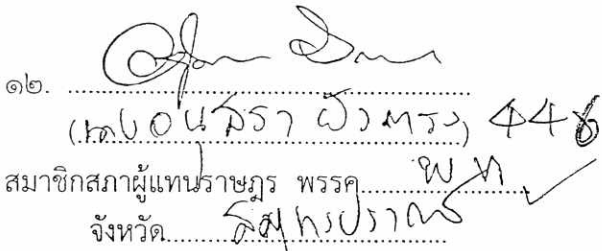 ๑๒.
(นางอนุสรา ยังตรง) 446
สมาชิกสภาผู้แทนราษฎร พรรค พท.
จังหวัด สมุทรปราการ